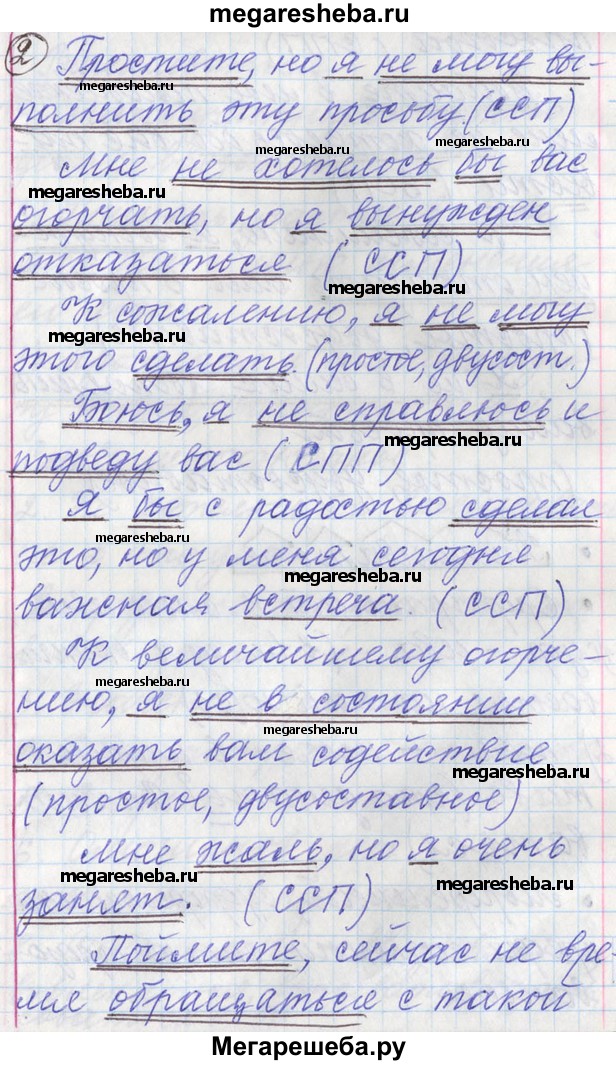 megaresheba.ru
2 Простите, но я не могу вы-
megaresheba.ru
полнить эту просьбу. (ССП)
megaresheba.ru
megaresheba.ru
Мне не хотелось бы вас
megaresheba.ru
огорчать, но я вынужден
отказаться (ССП)
megaresheba.ru
К сожалению, я не могу
megaresheba.ru
этого сделать. (простое, двусост.)
Боюсь, я не справлюсь и
megaresheba.ru
подведу вас (СПП)
Я бы с радостью сделал
megaresheba.ru
это, но у меня сегодня
megaresheba.ru
важная встреча. (ССП)
К величайшему огорче-
megaresheba.ru
нию, я не в состоянии
megaresheba.ru
оказать вам содействие
megaresheba.ru
(простое, двусоставное)
Мне жаль, но я очень
megaresheba.ru
megaresheba.ru
занят. (ССП)
Поймите, сейчас не вре-
megaresheba.ru
мя обращаться с такой
Мегарешеба.ру